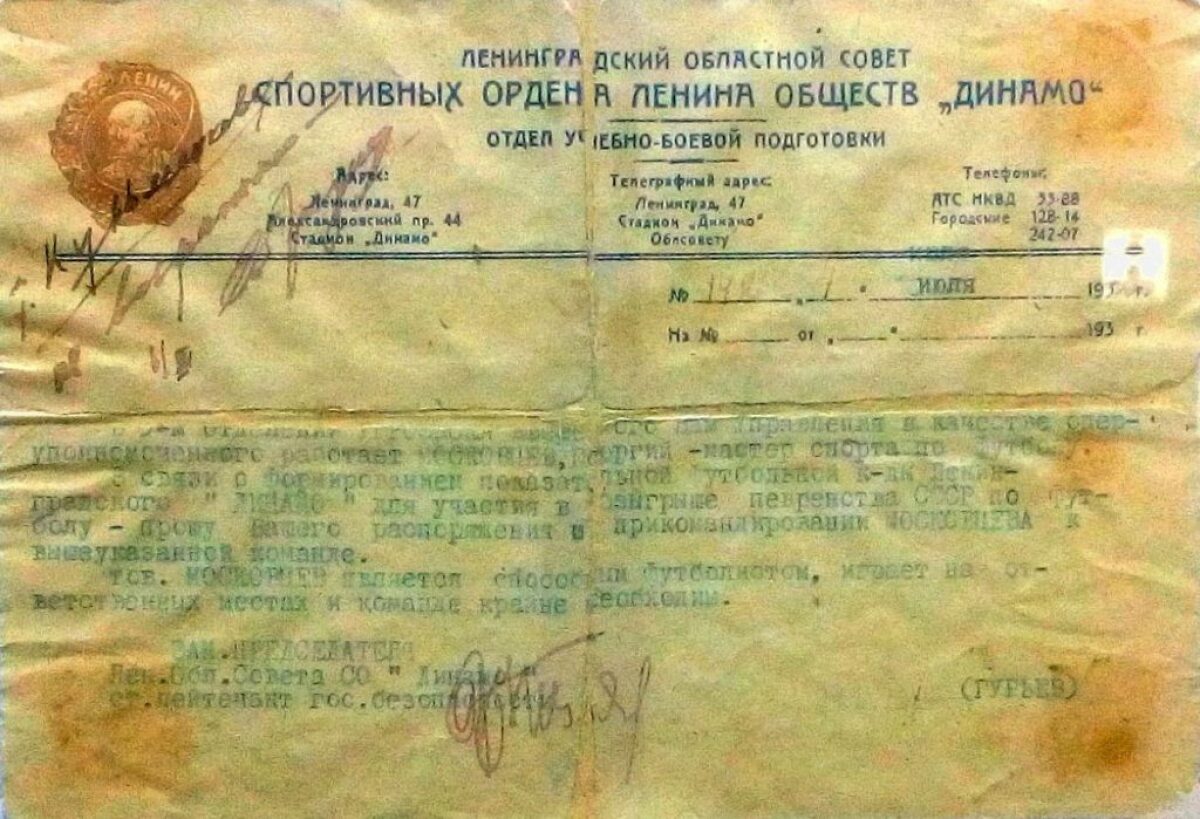 ЛЕНИН
ЛЕНИНГРАДСКИЙ ОБЛАСТНОЙ СОВЕТ
СПОРТИВНЫХ ОРДЕНА ЛЕНИНА ОБЩЕСТВ „ДИНАМО“
ОТДЕЛ УЧЕБНО-БОЕВОЙ ПОДГОТОВКИ
Адрес:
Ленинград, 47
Александровский пр. 44
Стадион „Динамо“
Телеграфный адрес:
Ленинград, 47
Стадион „Динамо“
Облсовету
Телефоны:
АТС НКВД 33-88
Городские 128-14
242-07
№ „1“ июля 193 г.
На № от „ “ 193 г
управления в качестве опер-
уполномоченного работает МОСКОВЦЕВ, Георгий -мастер спорта по футболу
В связи с формированием показательной футбольной к-ды Ленин-
градского " ДИНАМО " для участия в розыгрыше певренства СССР по фут-
болу - прошу Вашего распоряжения о прикомандировании МОСКОВЦЕВА к
вышеуказанной команде.
тов. МОСКОВЦЕВ является способным футболистом, играет на от-
ветственных местах и команде крайне необходим.
ЗАМ.ПРЕДСЕДАТЕЛЯ
Лен.Обл.Совета СО " Динамо "
ст.лейтенант гос.безопасности
(ГУРЬЕВ)